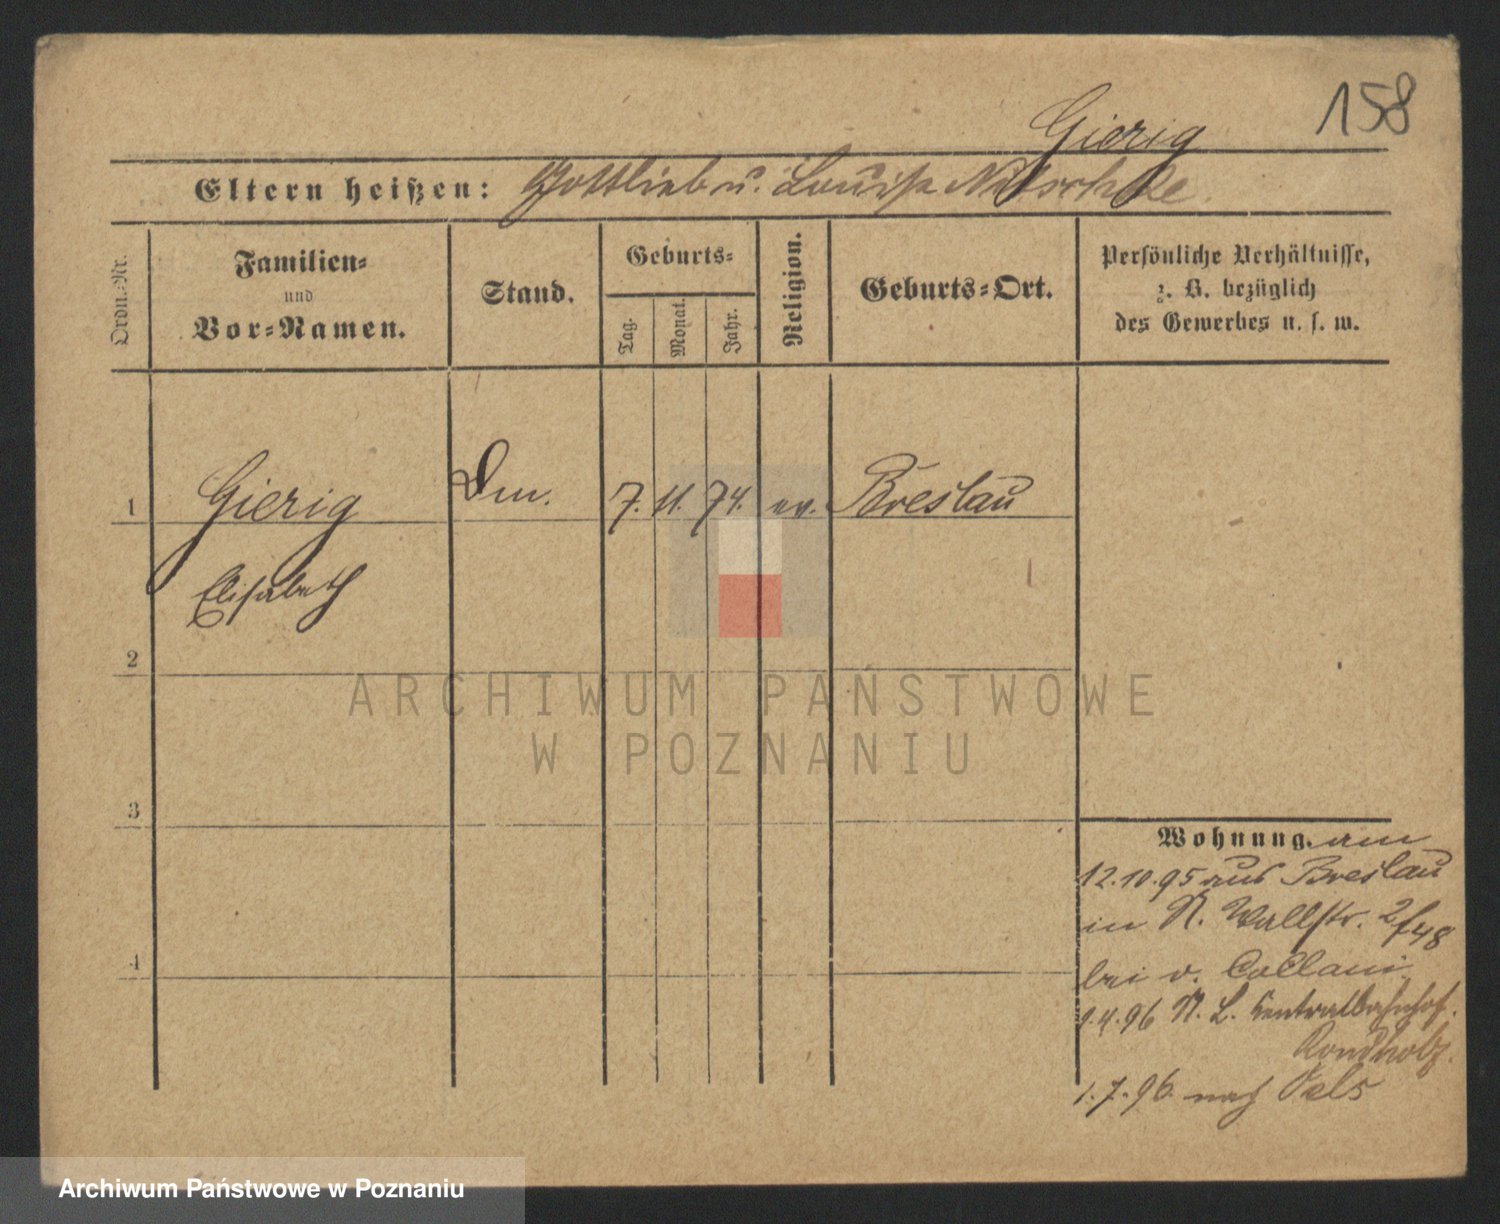 158
Gierig
Eltern heißen: Gottlieb u. Louise Nitschke.
Ordn.-Nr.
Familien-
und
Vor-Namen.
Stand.
Geburts-
Tag.
Monat.
Jahr.
Religion.
Geburts-Ort.
Persönliche Verhältnisse,
z. B. bezüglich
des Gewerbes u. s. w.
1 Gierig Dm. 7. 11. 74. ev. Breslau
Elisabeth
2
ARCHIWUM PAŃSTWOWE
W POZNANIU
3
Wohnung. am
12.10.95 aus Breslau
in N. Wallstr. 2/48
bei v. Collani
9.4.96 N. L. Centralbahnhof.
4
1.7.96. nach Oels
Archiwum Państwowe w Poznaniu